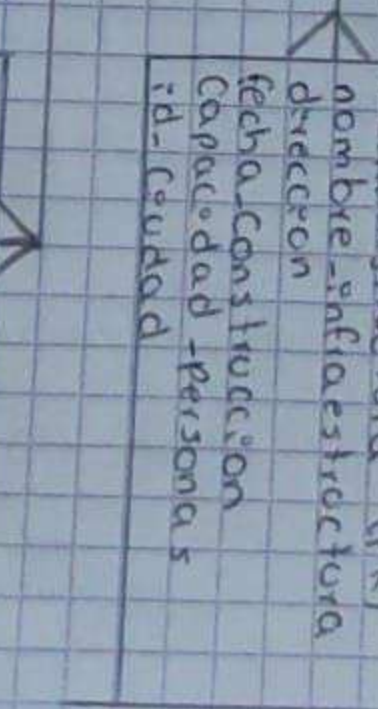 nombre_infraestructura
direccion
fecha_Construccion
Capacidad_personas
id_Ciudad